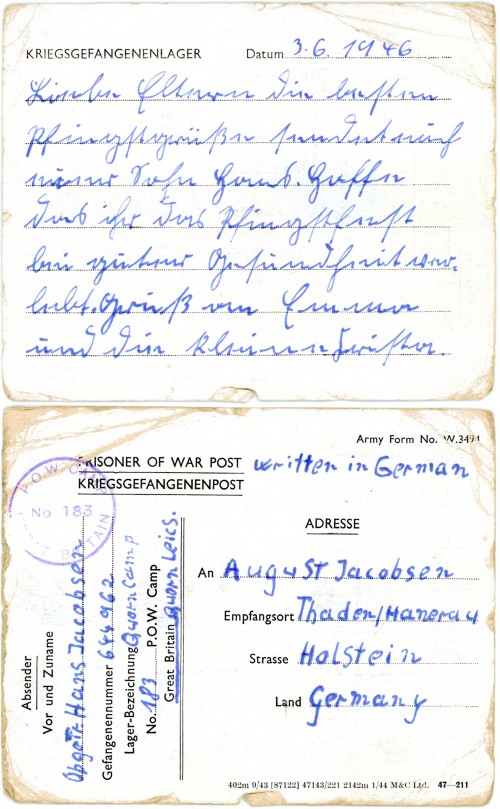 KRIEGSGEFANGENENLAGER Datum 3.6. 1946
Liebe Eltern die besten
Pfingstgrüße sendet euch
euer Sohn Hans. Hoffe
das ihr das Pfingstfest
bei guter Gesundheit ver-
lebt. Gruß an Emma
und die kleine Christa.
Army Form No. W.3494
PRISONER OF WAR POST written in German
KRIEGSGEFANGENENPOST
P.O.W. CAMP
No 183
GT BRITAIN
ADRESSE
An August Jacobsen
Empfangsort Thaden/Hanerau
Strasse Holstein
Land Germany
Absender
Vor und Zuname Obgefr. Hans Jacobsen
Gefangenennummer 644962
Lager-Bezeichnung Quorn Camp
No. 183 P.O.W. Camp
Great Britain Quorn Leics.
402m 9/43 [87122] 47143/221 2142m 1/44 M&C Ltd. 47—211